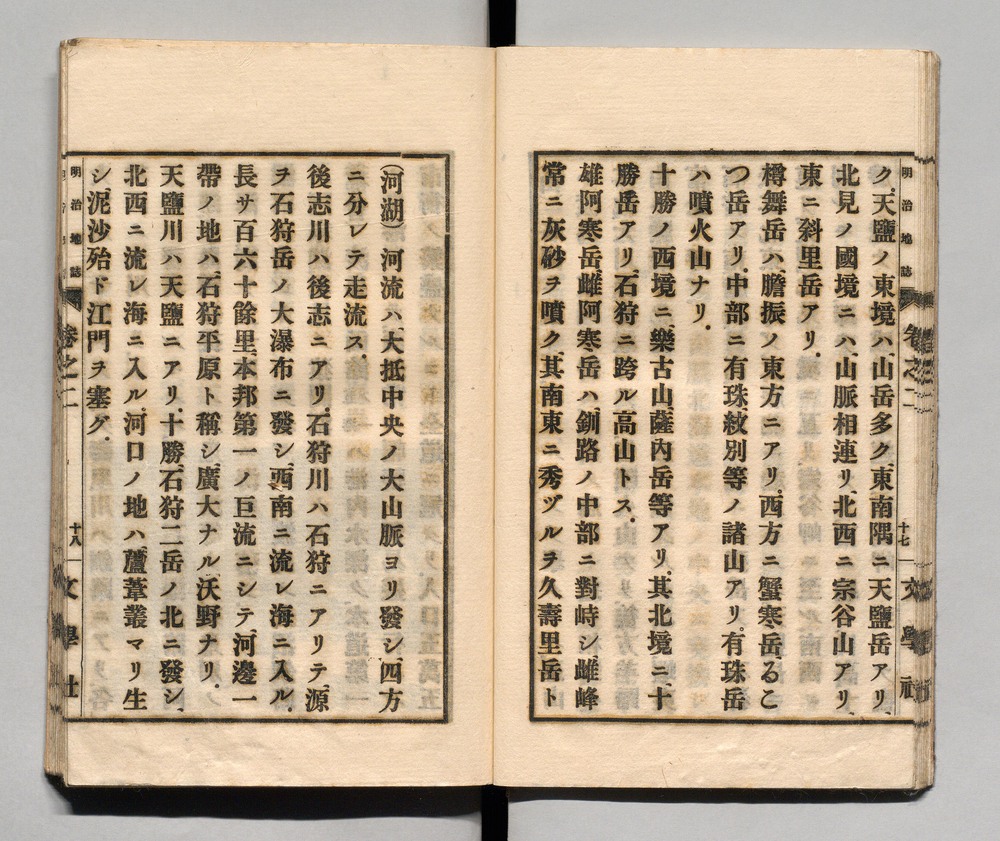 明治地誌 卷之二 十七 文學社
ク、天鹽ノ東境ハ、山岳多ク、東南隅ニ天鹽岳アリ、
北見ノ國境ニハ、山脈相連リ、北西ニ宗谷山アリ、
東ニ斜里岳アリ。
樽舞岳ハ、膽振ノ東方ニアリ。西方ニ蟹寒岳、るこ
つ岳アリ。中部ニ有珠、紋別等ノ諸山アリ。有珠岳
ハ噴火山ナリ。
十勝ノ西境ニ、樂古山、薩內岳等アリ。其北境ニ、十
勝岳アリ。石狩ニ跨ル高山トス。
雄阿寒岳、雌阿寒岳ハ、釧路ノ中部ニ對峙シ、雌峰
常ニ灰砂ヲ噴ク、其南東ニ秀ヅルヲ久壽里岳ト
(河湖) 河流ハ、大抵中央ノ大山脈ヨリ發シ、四方
ニ分レテ走流ス。
後志川ハ、後志ニアリ。石狩川ハ石狩ニアリテ、源
ヲ石狩岳ノ大瀑布ニ發シ、西南ニ流レ海ニ入ル。
長サ百六十餘里、本邦第一ノ巨流ニシテ、河邊一
帶ノ地ハ、石狩平原ト稱シ、廣大ナル沃野ナリ。
天鹽川ハ、天鹽ニアリ。十勝、石狩二岳ノ北ニ發シ、
北西ニ流レ海ニ入ル。河口ノ地ハ、蘆葦叢マリ生
シ、泥沙殆ド江門ヲ塞グ。
明治地誌 卷之二 十八 文學社